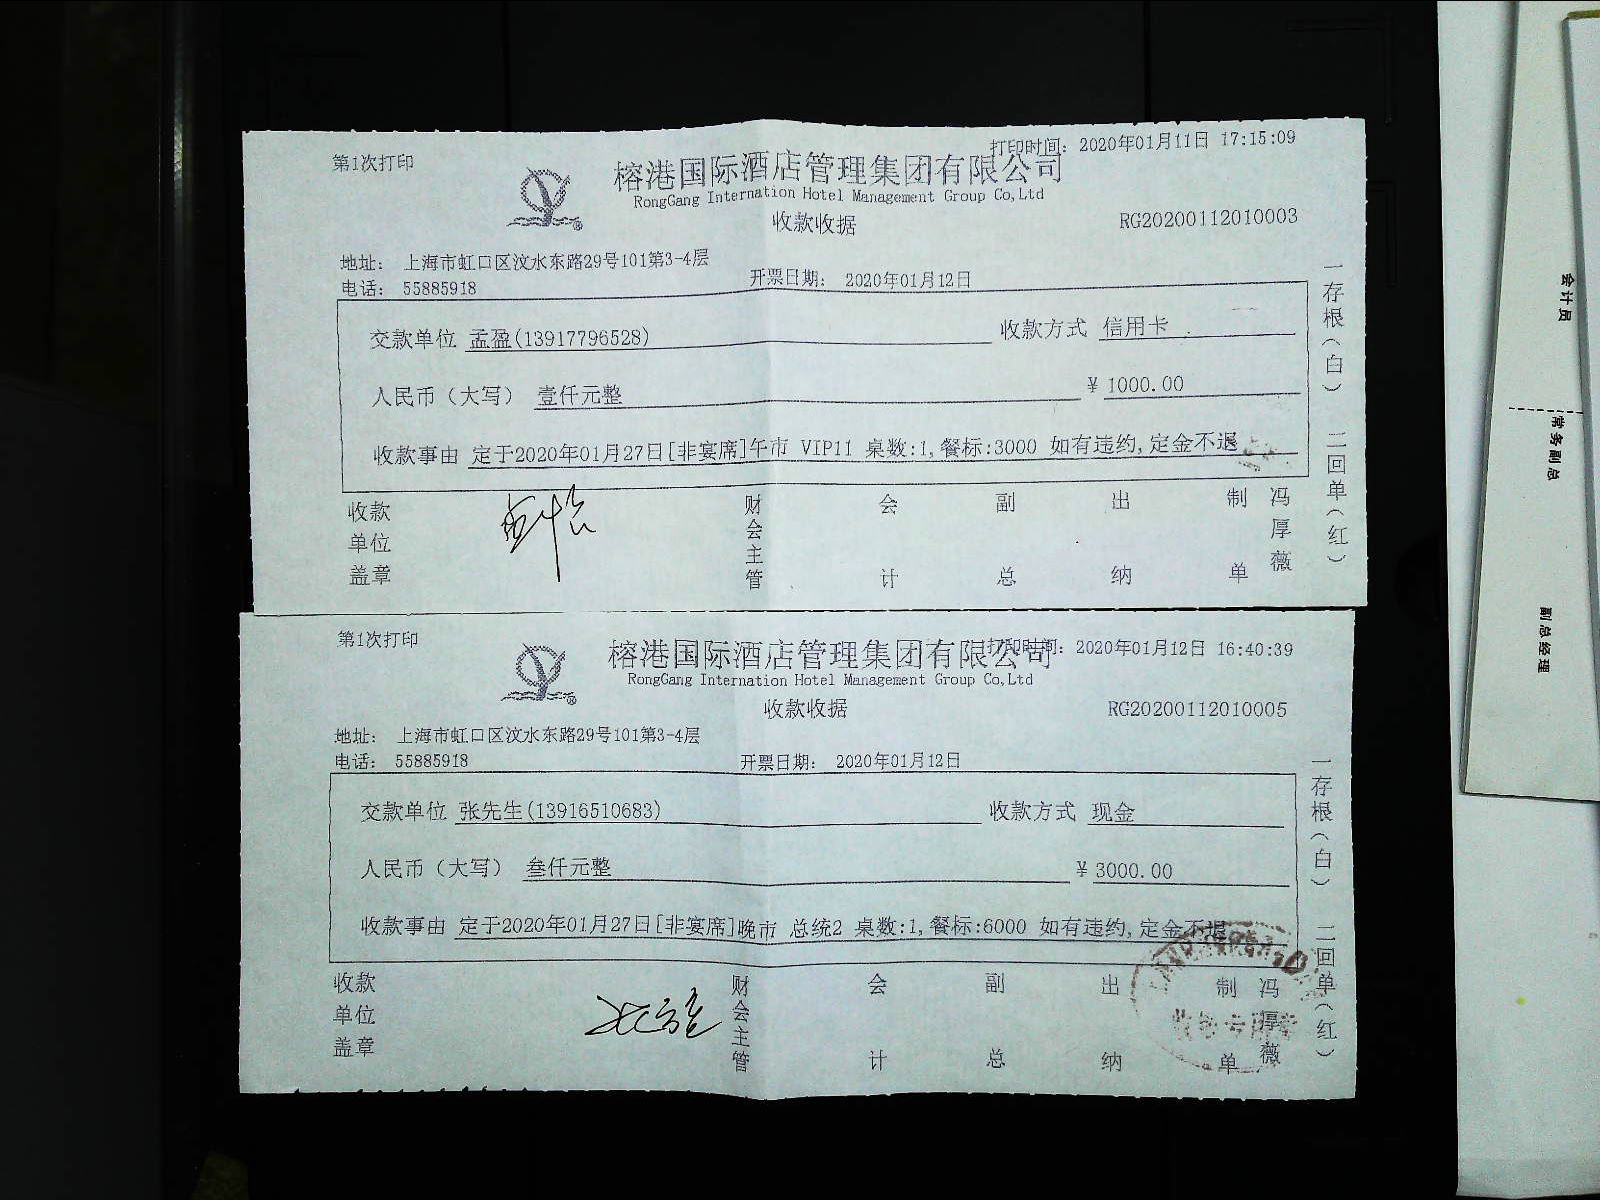 第1次打印
打印时间: 2020年01月11日 17:15:09
榕港国际酒店管理集团有限公司
RongGang Internation Hotel Management Group Co,Ltd
收款收据
RG20200112010003
地址: 上海市虹口区汶水东路29号101第3-4层
电话: 55885918
开票日期: 2020年01月12日
交款单位 孟盈(13917796528) 收款方式 信用卡
人民币（大写） 壹仟元整 ¥ 1000.00
收款事由 定于2020年01月27日[非宴席]午市 VIP11 桌数:1,餐标:3000 如有违约,定金不退
收款单位盖章 财会主管 会计 副总 出纳 制单 冯厚薇
一存根（白） 二回单（红）
第1次打印
打印时间: 2020年01月12日 16:40:39
榕港国际酒店管理集团有限公司
RongGang Internation Hotel Management Group Co,Ltd
收款收据
RG20200112010005
地址: 上海市虹口区汶水东路29号101第3-4层
电话: 55885918
开票日期: 2020年01月12日
交款单位 张先生(13916510683) 收款方式 现金
人民币（大写） 叁仟元整 ¥ 3000.00
收款事由 定于2020年01月27日[非宴席]晚市 总统2 桌数:1,餐标:6000 如有违约,定金不退
收款单位盖章 财会主管 会计 副总 出纳 制单 冯厚薇
一存根（白） 二回单（红）
会计员
常务副总
副总经理